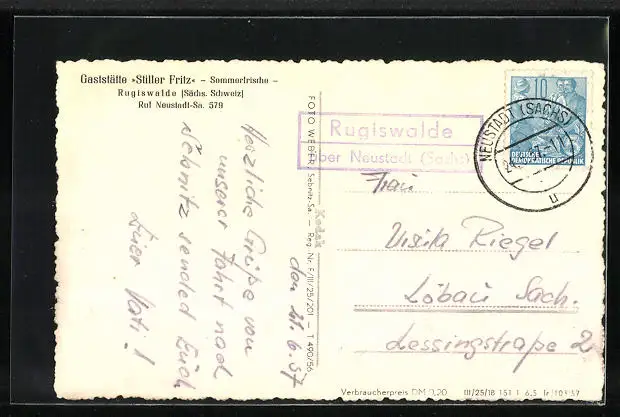 Gaststätte »Stiller Fritz« – Sommerfrische –
Rugiswalde [Sächs. Schweiz]
Ruf Neustadt-Sa. 579
Herzliche Grüße von
unserer Fahrt nach
Sebnitz sendet Euch
Euer Vati!
den 21.6.57
FOTO WEBER, Sebnitz-Sa. – Reg. Nr. F/III/25/201 – T 490/56
Kodak
Rugiswalde
über Neustadt (Sachs)
10
DEUTSCHE
DEMOKRATISCHE REPUBLIK
NEUSTADT (SACHS)
u
Frau
Riegel
Löbau Sach.
Lessingstraße 2
Verbraucherpreis DM 0,20
III/25/18 151 1 6,5